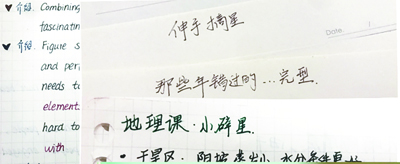 介绍. Combining
fascinatin
介绍. Figure s
and peri
needs to
element.
hard to
with
伸手摘星
Date
那些年错过的…完型.
地理课·小碎星.
• 干旱区: 阴坡